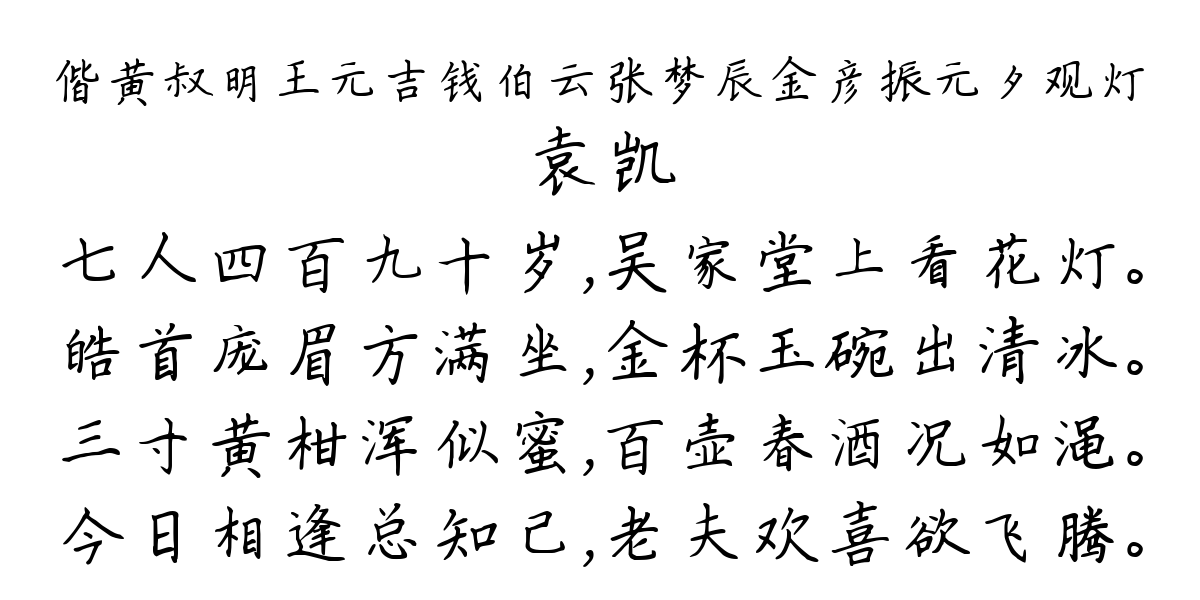 偕黄叔明王元吉钱伯云张梦辰金彦振元夕观灯
袁凯
七人四百九十岁,吴家堂上看花灯。
皓首庞眉方满坐,金杯玉碗出清冰。
三寸黄柑浑似蜜,百壶春酒况如渑。
今日相逢总知己,老夫欢喜欲飞腾。